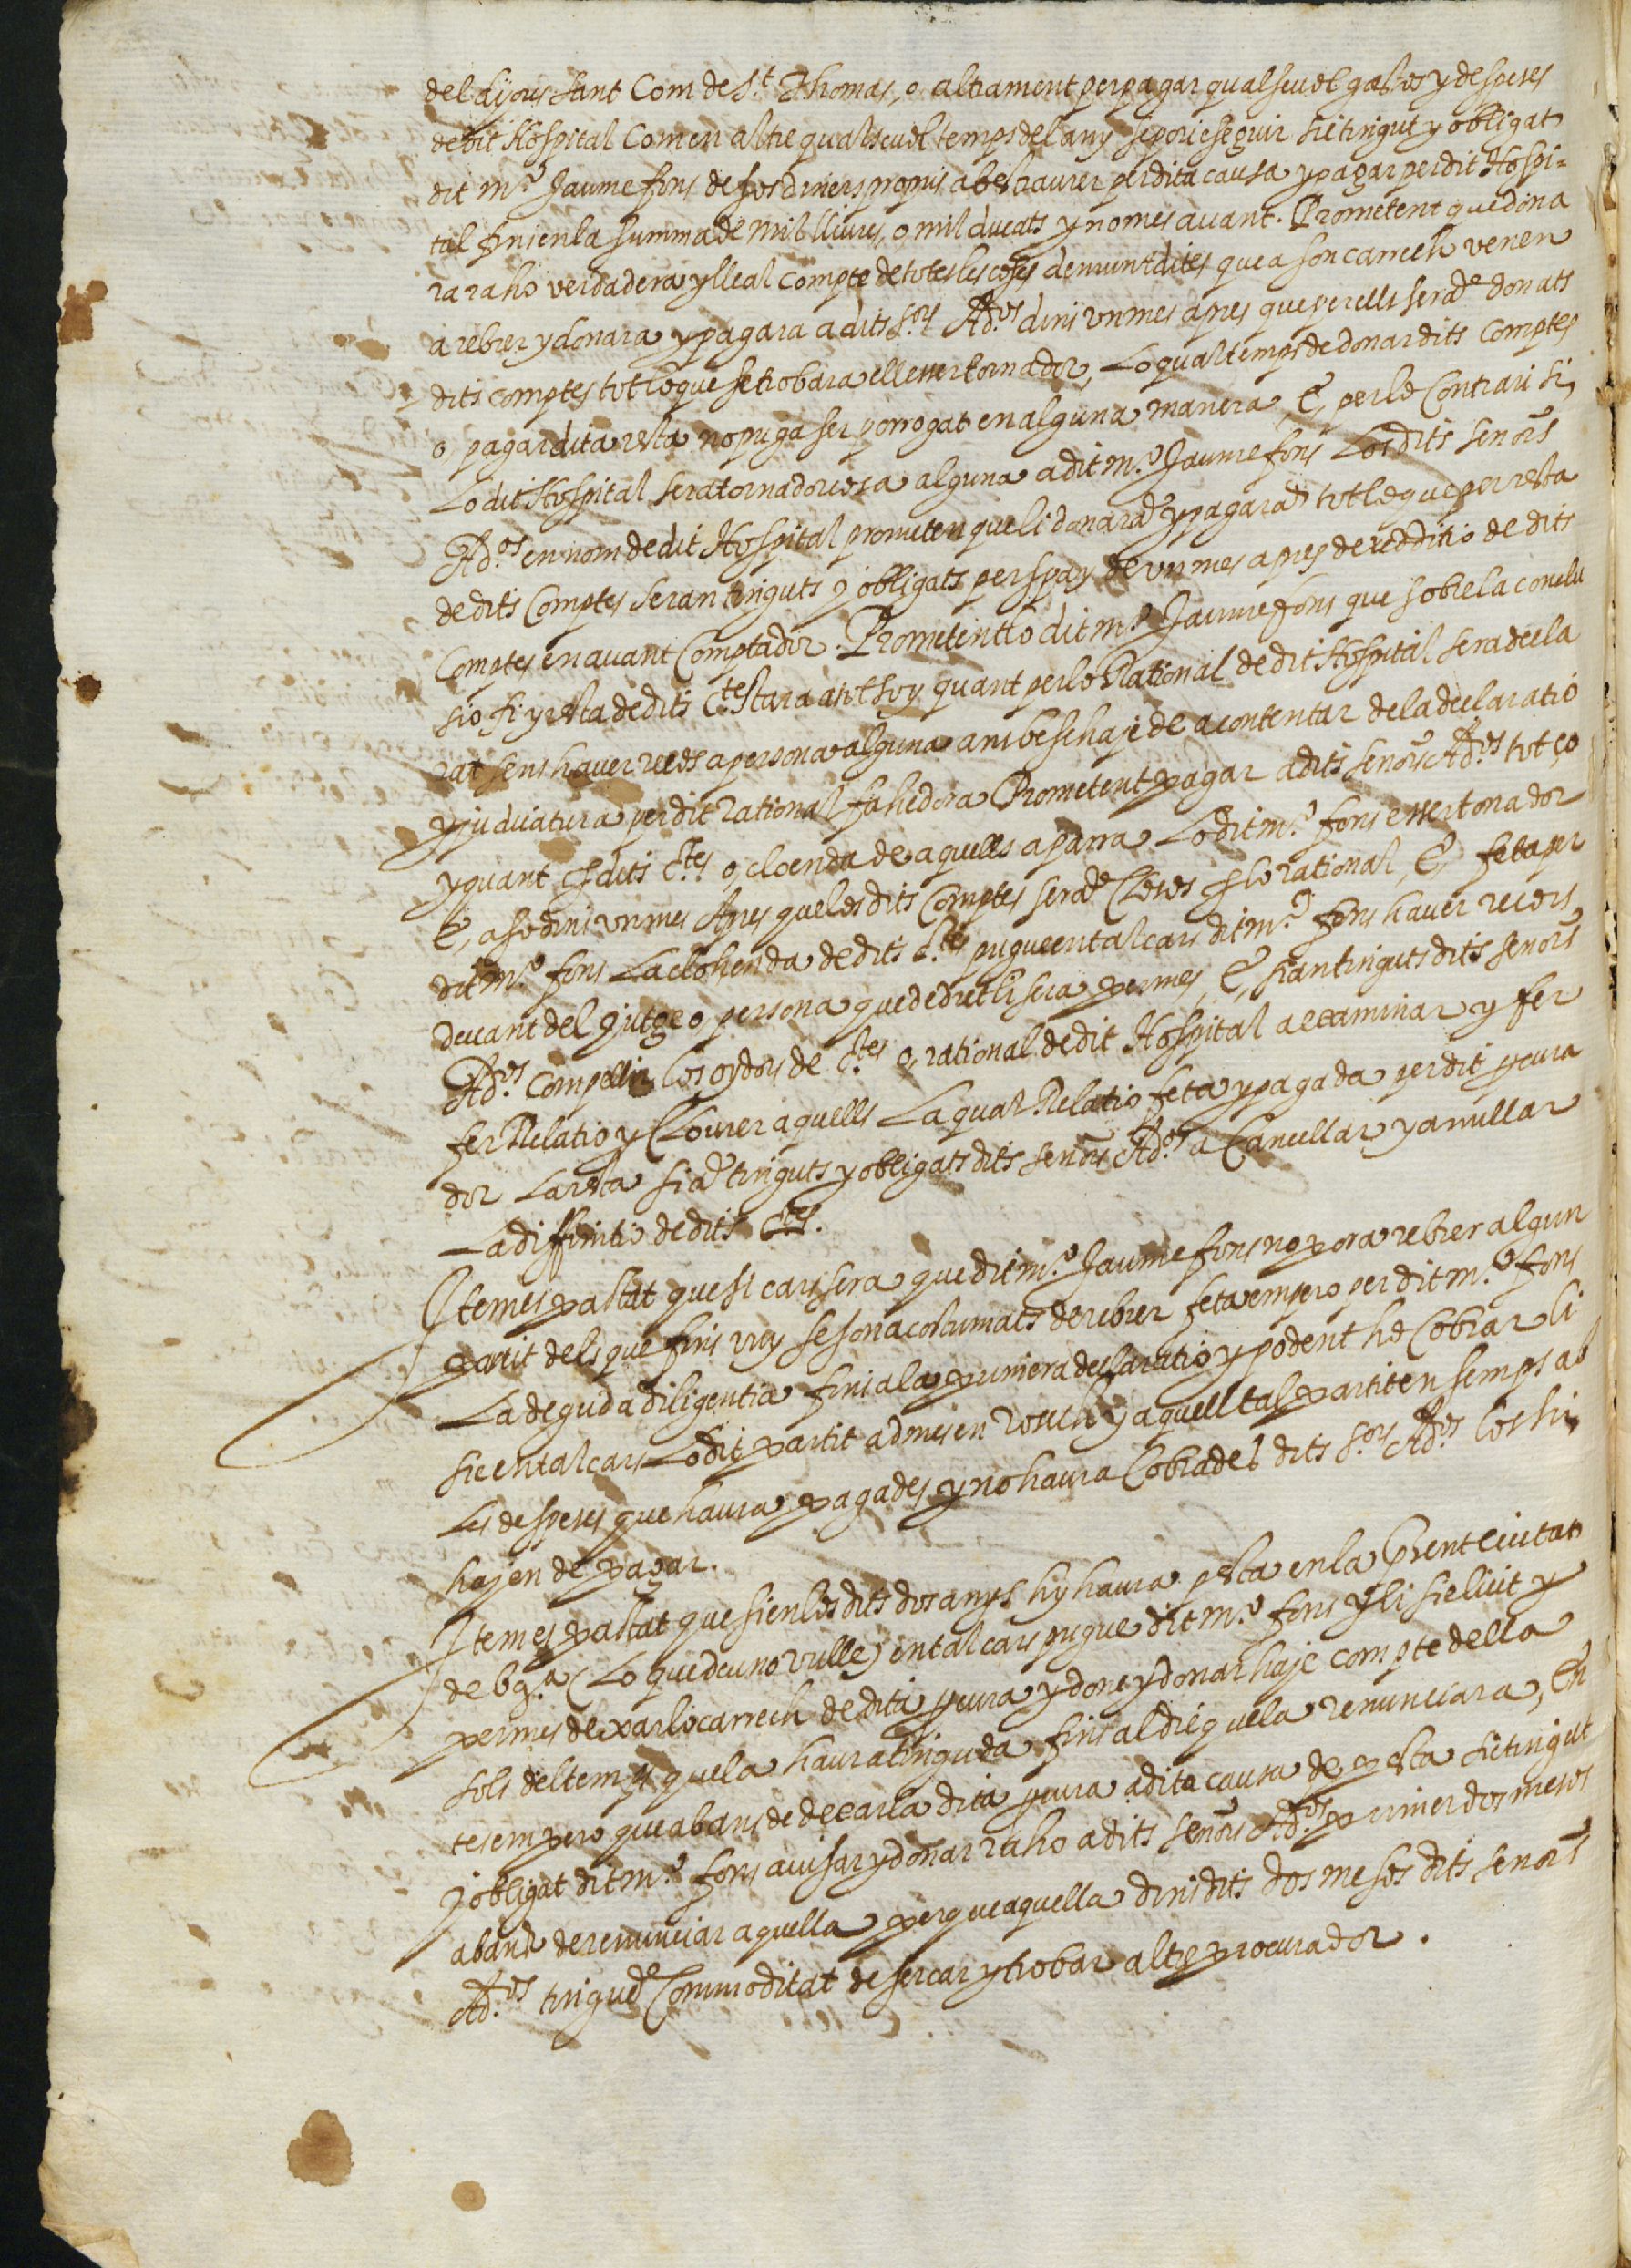 del dijous sant Com de s.t Thomas, o altrament per pagar qualsevol gastos y despeses
de dit Hospital Com en altre qualsevol temps del any se porie seguir sie tingut y obligat
dit m.o Jaume fons de sos diners propris a bestraurer per dita causa y pagar per dit Hospi=
tal fins en la summa de mil lliures, o mil ducats y no mes avant. Prometent que dona
ra raho verdadera y lleal compte de totes les coses demunt dites que a son carrech venen
a rebrer y donara y pagara a dits s.ors Ad.ors dins vn mes apres que per ells serā donats
dits comptes tot lo que se trobara ell esser tornador, Lo qual temps de donar dits Comptes
o, pagar dita resta no puga ser porrogat en alguna manera, E, per lo Contrari si
Lo dit Hospital sera tornador cosa alguna a dit m.o Jaume fons Los dits senors
Ad.ors en nom de dit Hospital prometen que li donarā y pagarā tot lo que per resta
de dits Comptes seran tinguts y obligats per spay de vn mes apres de redditio de dits
Comptes en avant Comptador. Prometent lo dit m.o Jaume fons que sobre la conclu
sio fi y resta de dits C.tes stara a tot so y quant per lo Rational de dit Hospital sera decla
rat sens haver recors a persona alguna ans be se haje de acontentar de la declaratio
y judicatura per dit rational fahedora Prometent pagar a dits senors Ad.ors tot ço
y quant ꝑ dits C.tes o, cloenda de aquells aparra Lo dit m.o fons esser tornador
E, aso dins vn mes Apres que los dits Comptes serā Closos ꝑ lo rational, E, feta per
dit m.o fons La clohenda de dits C.tes pugue en tal cars dit m.o fons haver recors
devant del jutge o, persona que de dret li sera permes, E, sian tinguts dits senors
Ad.ors Compellir los oydors de C.tes o, rational de dit Hospital a examinar y fer
fer Relatio y Clourer aquells La qual Relatio feta y pagada per dit ꝓcura
dor La resta siā tinguts y obligats dits senors Ad.ors a Cancellar y annullar
La diffinitio de dits C.tes.
Item es pactat que si cars sera que dit m.o Jaume fons no pora rebrer algun
partit dels que fins vuy se son acostumats de rebrer feta empero per dit m.o fons
La deguda diligentia fins a la primera declaratio y podent ho Cobrar li
sie en tal cars Lo dit partit admes en rossech y aquell tal partit ensemps ab
Les despeses que haura pagades y no haura Cobrades dits s.ors Ad.ors los hi
hajen de pagar.
Item es pactat que si en los dits dos anys hy haura pesta en la ꝑsent Ciutat
de b.a (Lo que deu no vulle) en tal cars pugue dit m.o fons y li sie licit y
permes dexar lo carrech de dita ꝓcura y done y donar haje compte della
sols del temps que la haura tinguda fins al die que la renunciara, En
tes empero que abans de dexarla dita ꝓcura a dita causa de pesta sie tingut
y obligat dit m.o fons avisar y donar raho a dits senors Ad.ors primer dos mesos
abans de renunciar aquella per que aquella dins dits dos mesos dits senors
Ad.ors tinguē Commoditat de sercar y trobar altre procurador.